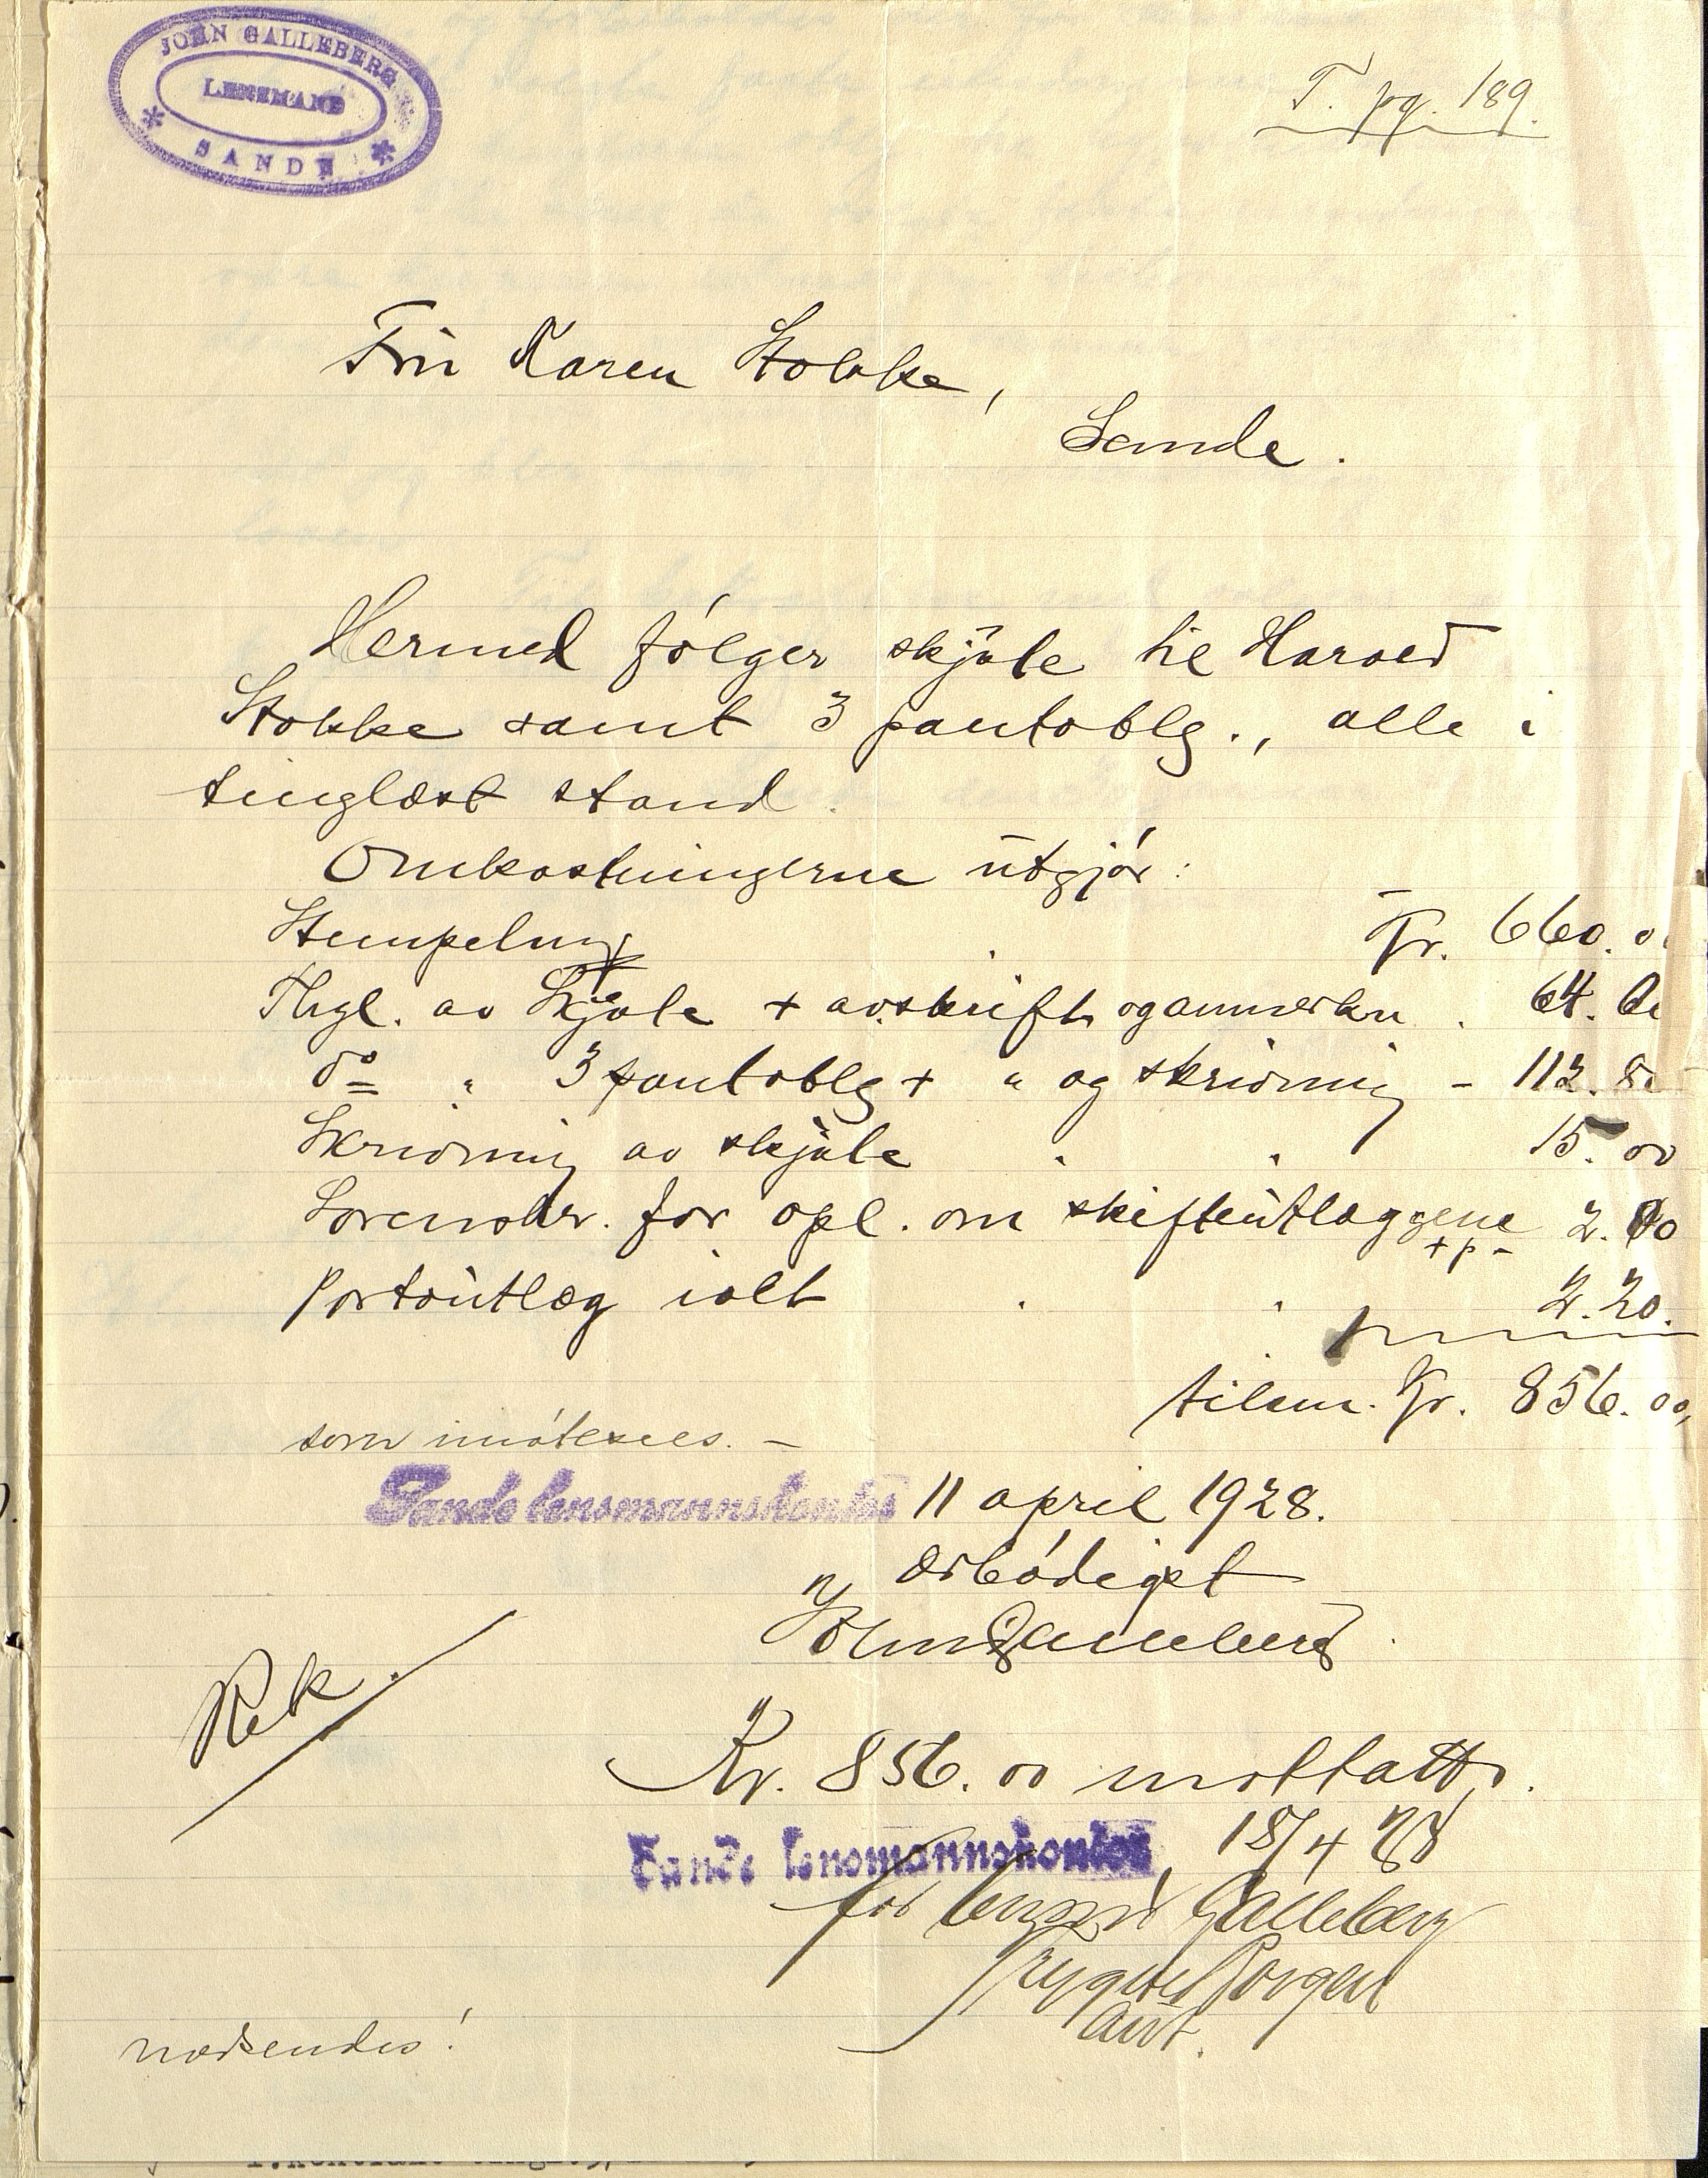 JOHN GALLEBERG
LENSMAND
SANDE
T. pg. 189.
Fru Karen Stokke,
Sande.
Hermed følger skjøte til Harald
Stokke samt 3 pantoblg., alle i
tinglæst stand.
Omkostningerne utgjør:
Stempeling Kr. 660.0
Thgl. av Skjøte + avskrift og anmerkn. 64.
do " 3 pantoblg + " og skrivning - 112.80
Skrivning av skjøte 15.00
Sorenskr. for opl. om skifteutlæggene 2.00
+ p -
Portoutlæg ialt 2.20.
tilsm. Kr. 856.00,
som imøtesees. -
Sande lensmannskontor 11 april 1928.
ærbødigst
John Galleberg
Rek.
Kr. 856.00 mottatt.
Sande lensmannskontor, 18/4 28
for Galleberg
aut.
vedsendes!